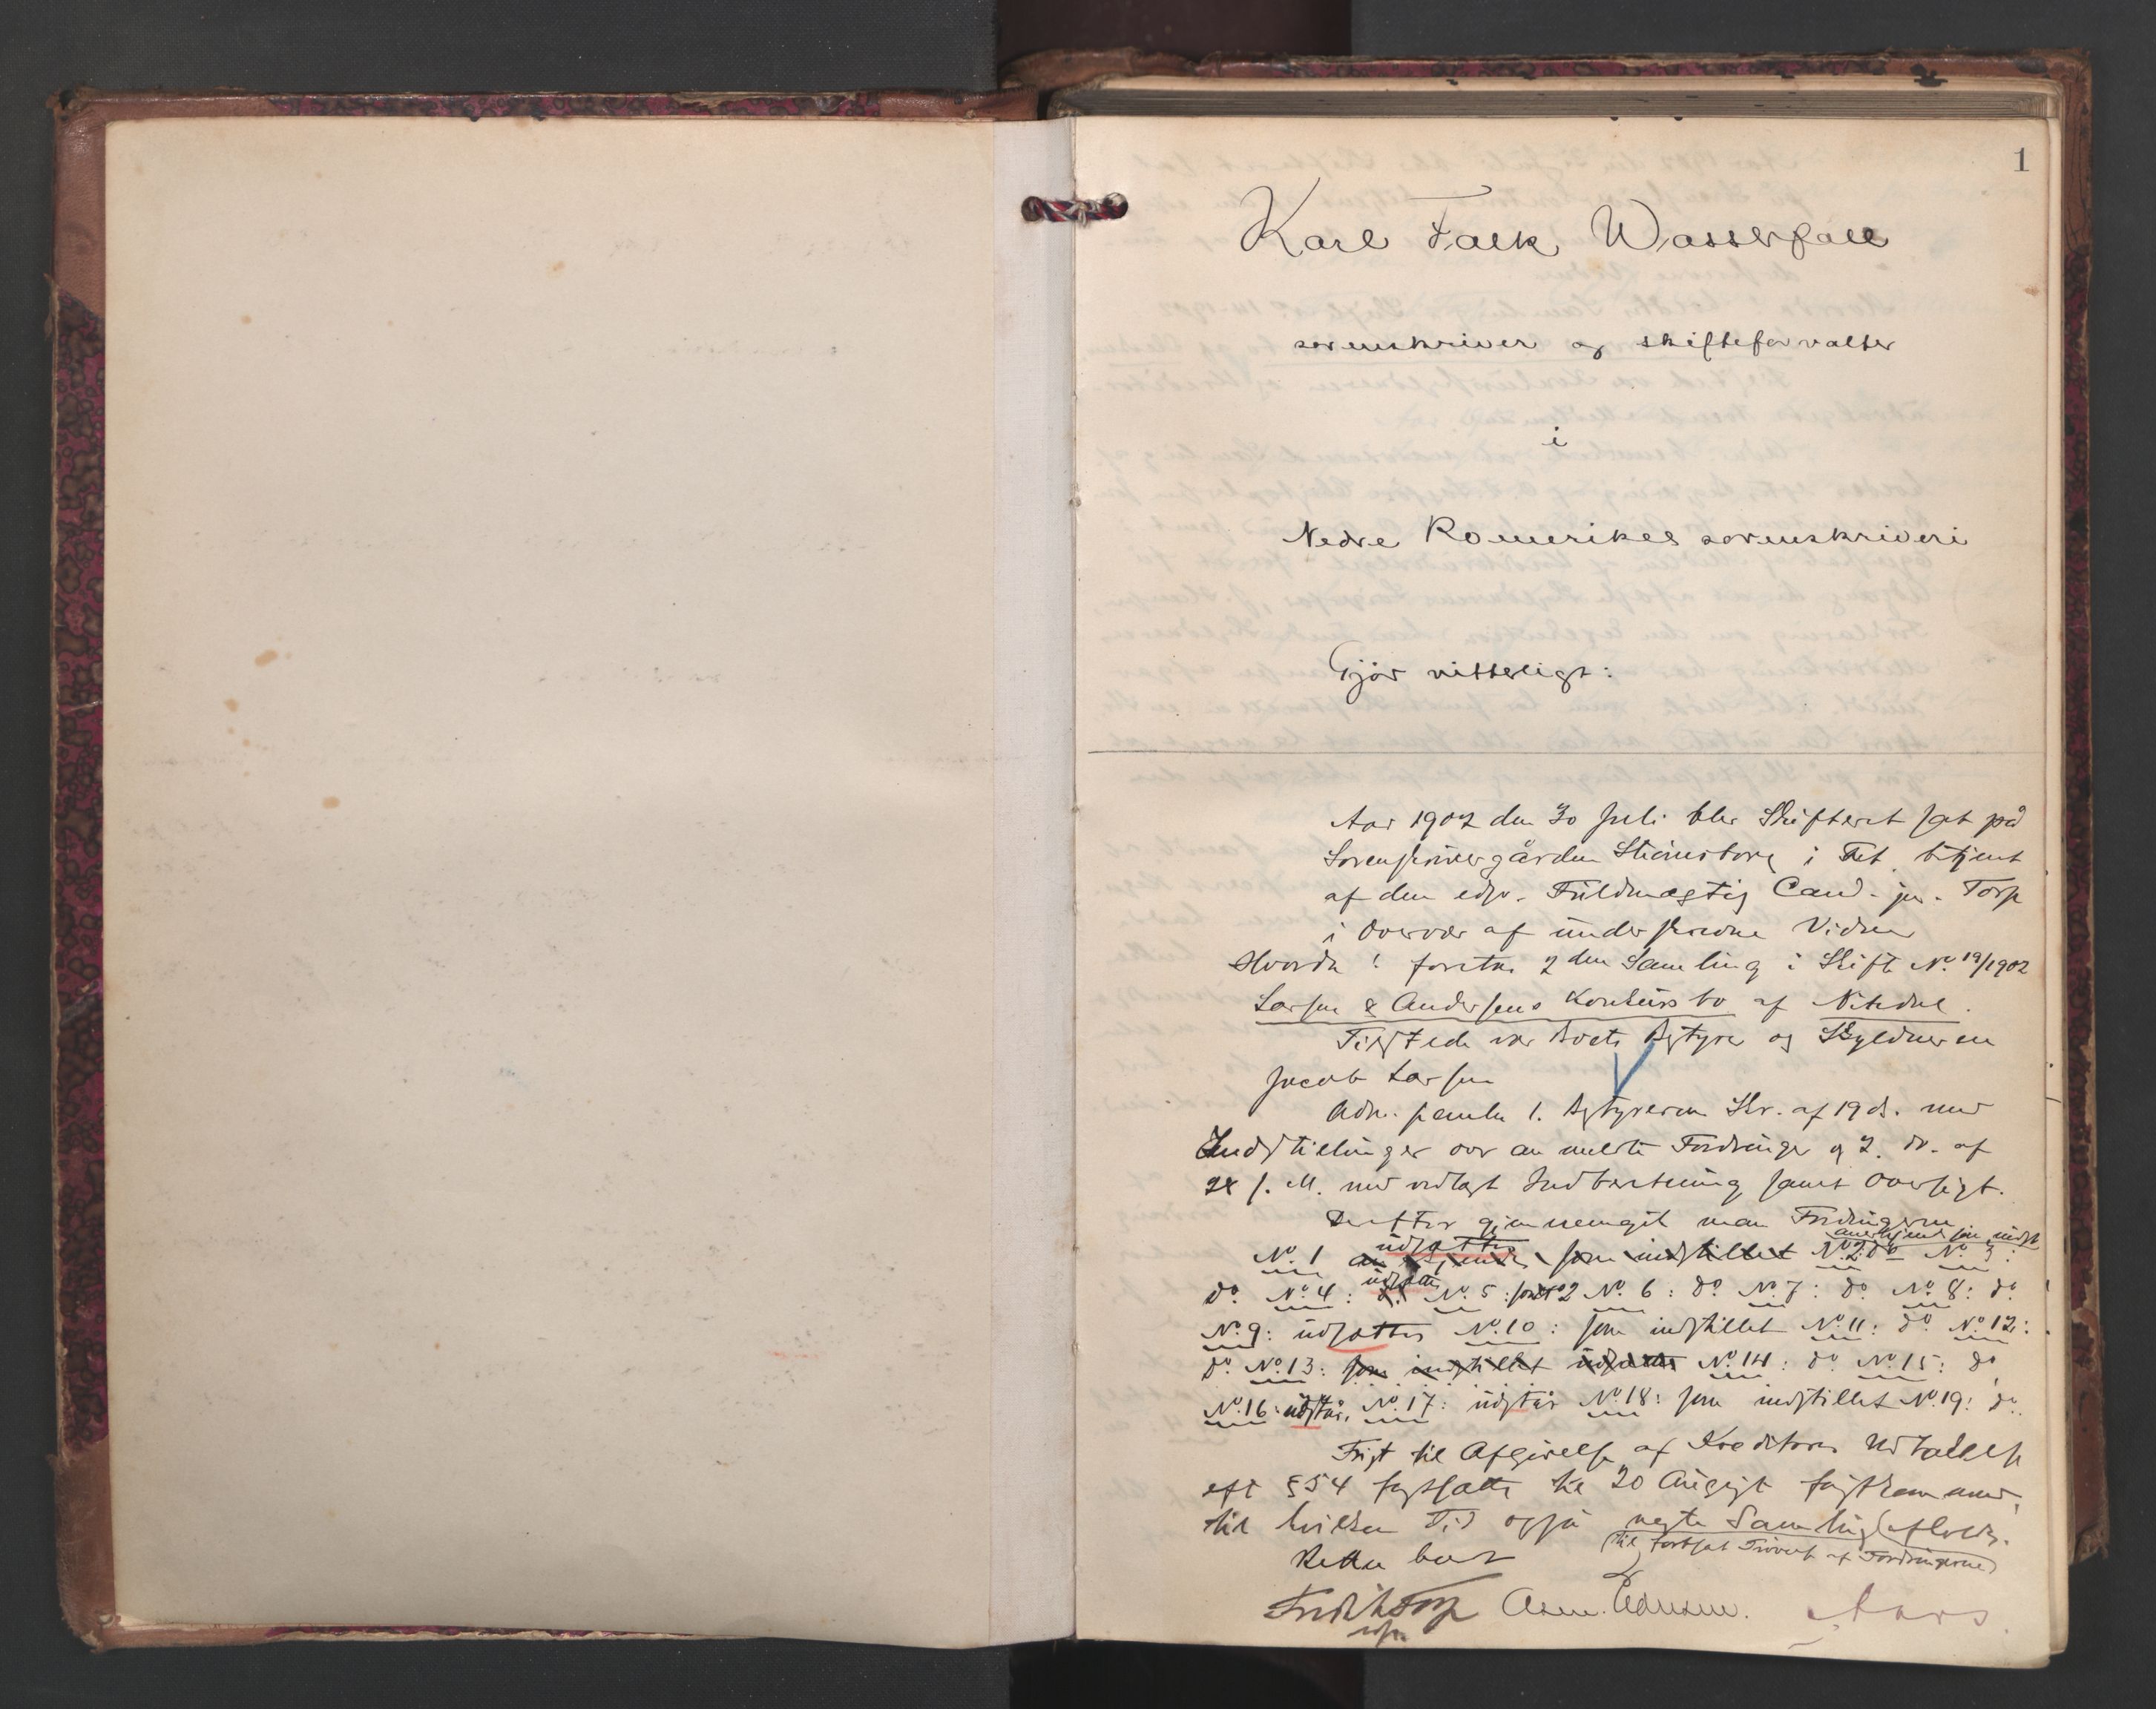 1
Karl Falk Wasserfall
sorenskriver og skifteforvalter
i
Nedre Romerikes sorenskriveri
Gjør vitterligt:
Aar 1902 den 30 Juli blev Skifteret sat på
Sorenskrivergården i Fet betjent
af den edsv. Fuldmægtig Cand. jur. Torp
i Overvær af underskrevne Vidner
Hvorda: foretos 2den Samling i Skift No 19/1902
Larsen & Andersens Konkursbo af Nitedal.
Tilstede var Boets Bestyrer og Skyldneren
Jacob Larsen
Adm. fremla 1. Bestyreren Skr. af 19 ds. med
Indstillinger over anmeldte Fordringer og 2. do. af
28 s. M. med vedlagt Indberetning samt Oversigt.
Derefter gjennemgik man Fordringerne
anerkjend som indst
udsættes
No. 1 anerkjendes som indstillet No. 2 do No. 3:
udsættes
do. No. 4: do. No. 5: som No 2 No. 6: do No 7: do No 8: do
No. 9: udsættes No. 10: som indstillet No. 11: do No. 12:
do No. 13: som indstillet udsættes No. 14: do No. 15: do
No. 16: udstår. No. 17: udstår No. 18: som indstillet No. 19: do.
Frist til Afgivelse af Kreditors Udtalelse
eft § 54 fastsattes til 20 August førstkommend,
til hvilken Tid også neste Samling afholdes.
(til fortsat Prøvelse af Fordringerne)
Retten hævet
Fredrik Torp
edsv.
Aars